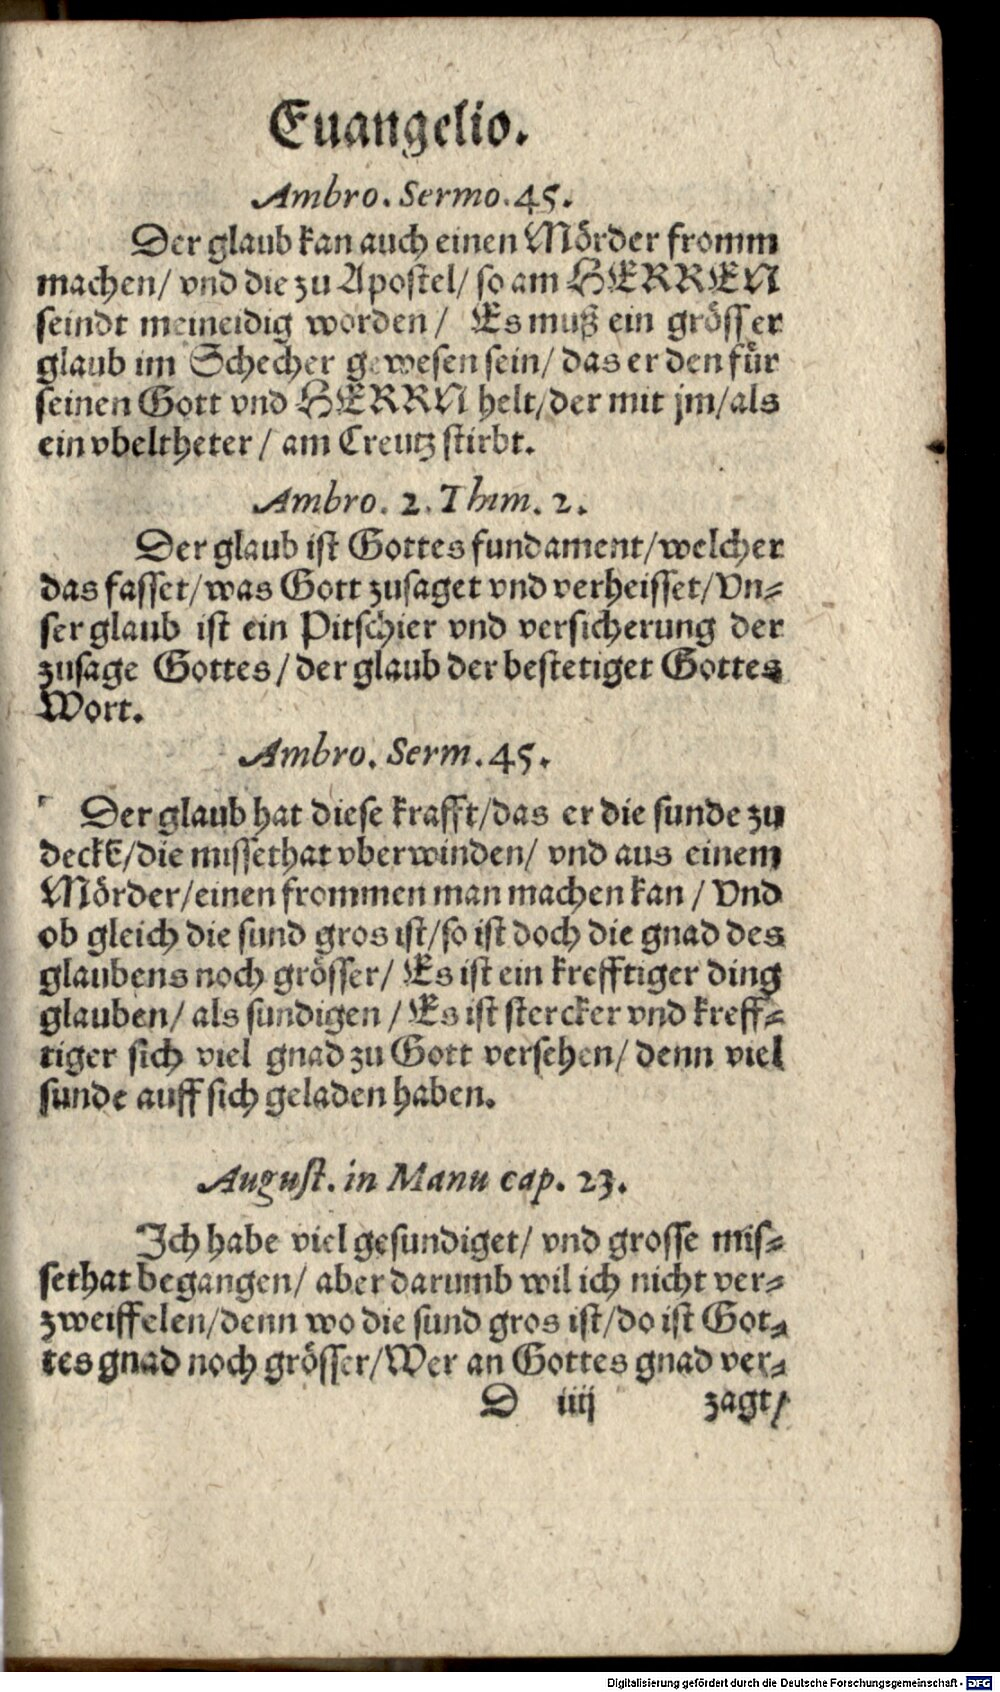 Euangelio.
Ambro. Sermo. 45.
Der glaub kan auch einen Mörder fromm
machen/ vnd die zu Apostel/ so am HERREN
seindt meineidig worden/ Es muß ein grösser
glaub im Schecher gewesen sein/ das er den für
seinen Gott vnd HERRN helt/der mit jm/als
ein vbeltheter/ am Creutz stirbt.
Ambro. 2. Thim. 2.
Der glaub ist Gottes fundament/welcher
das fasset/was Gott zusaget vnd verheisset/Vn-
ser glaub ist ein Pitschier vnd versicherung der
zusage Gottes/ der glaub der bestetiget Gottes
Wort.
Ambro. Serm. 45.
Der glaub hat diese krafft/das er die sunde zu
deckt/die missethat vberwinden/ vnd aus einem
Mörder/einen frommen man machen kan/ Vnd
ob gleich die sund gros ist/so ist doch die gnad des
glaubens noch grösser/ Es ist ein krefftiger ding
glauben/ als sundigen/ Es ist stercker vnd kreff-
tiger sich viel gnad zu Gott versehen/ denn viel
sunde auff sich geladen haben.
August. in Manu cap. 23.
Ich habe viel gesundiget/ vnd grosse mis-
sethat begangen/ aber darumb wil ich nicht ver-
zweiffelen/denn wo die sund gros ist/do ist Got-
tes gnad noch grösser/Wer an Gottes gnad ver-
D iiij zagt/
Digitalisierung gefördert durch die Deutsche Forschungsgemeinschaft - DFG